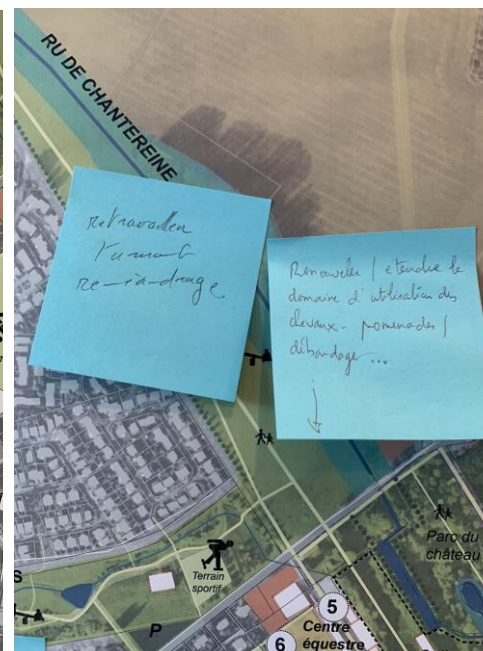 RU DE CHANTEREINE
retravailler
Renouveler / étendre le
domaine d'utilisation des
chevaux. promenades /
débardage ...
Parc du
château
Terrain
sportif
P
5
Centre
équestre
6